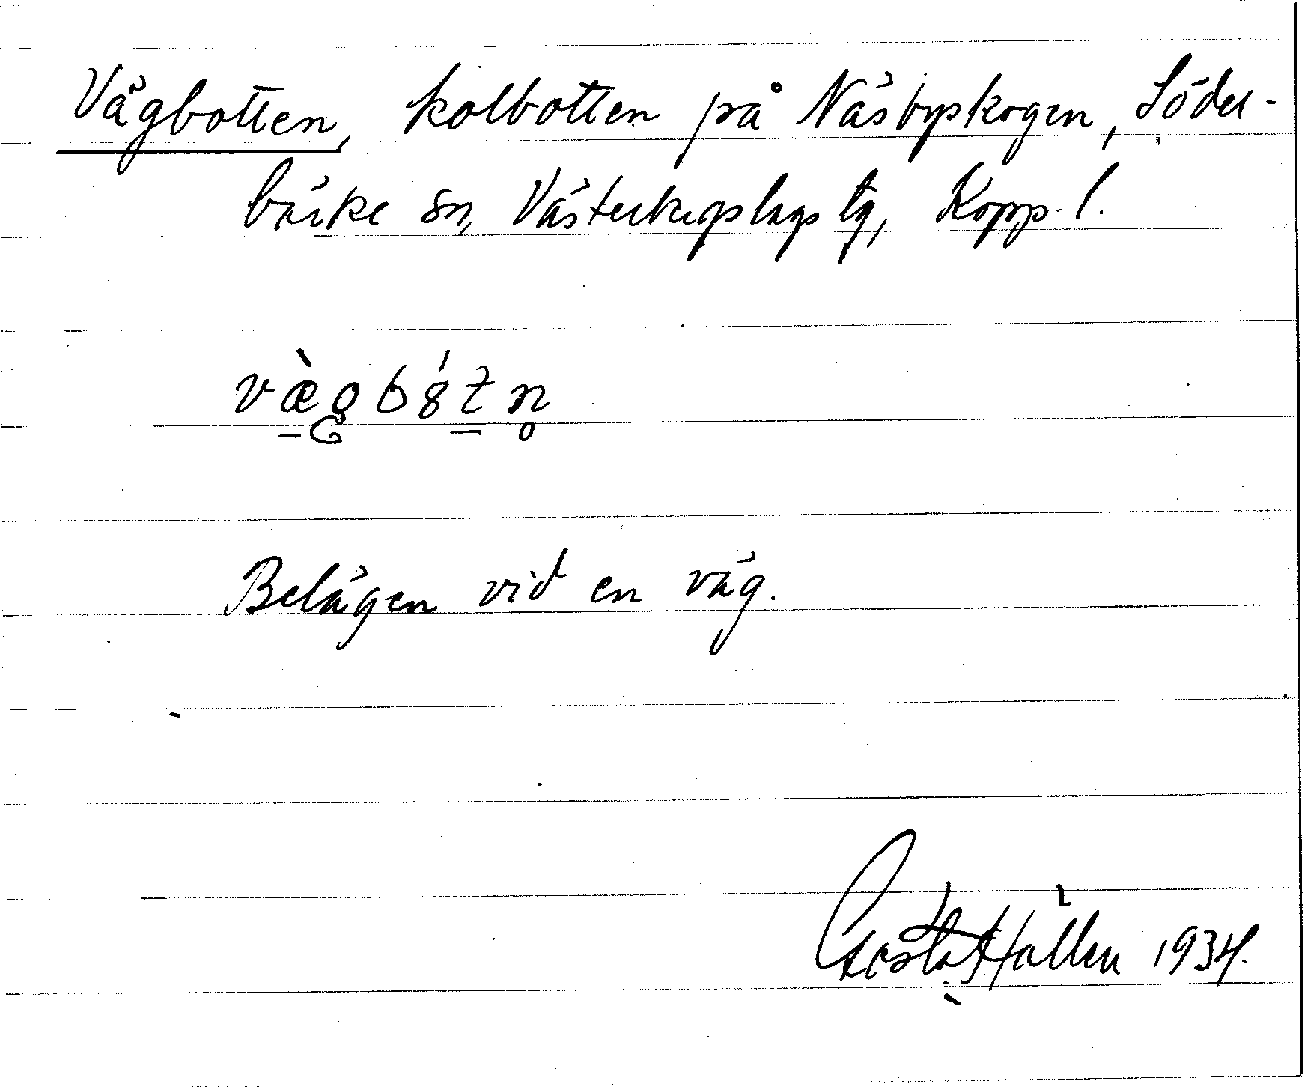 Vägbotten, kolbotten på Näsbyskogen, Söder-
bärke sn, Västerbergslags tg, Kopp. l.
væ̀gbó̤tn̥
Belägen vid en väg.
Gösta Hallén 1934.